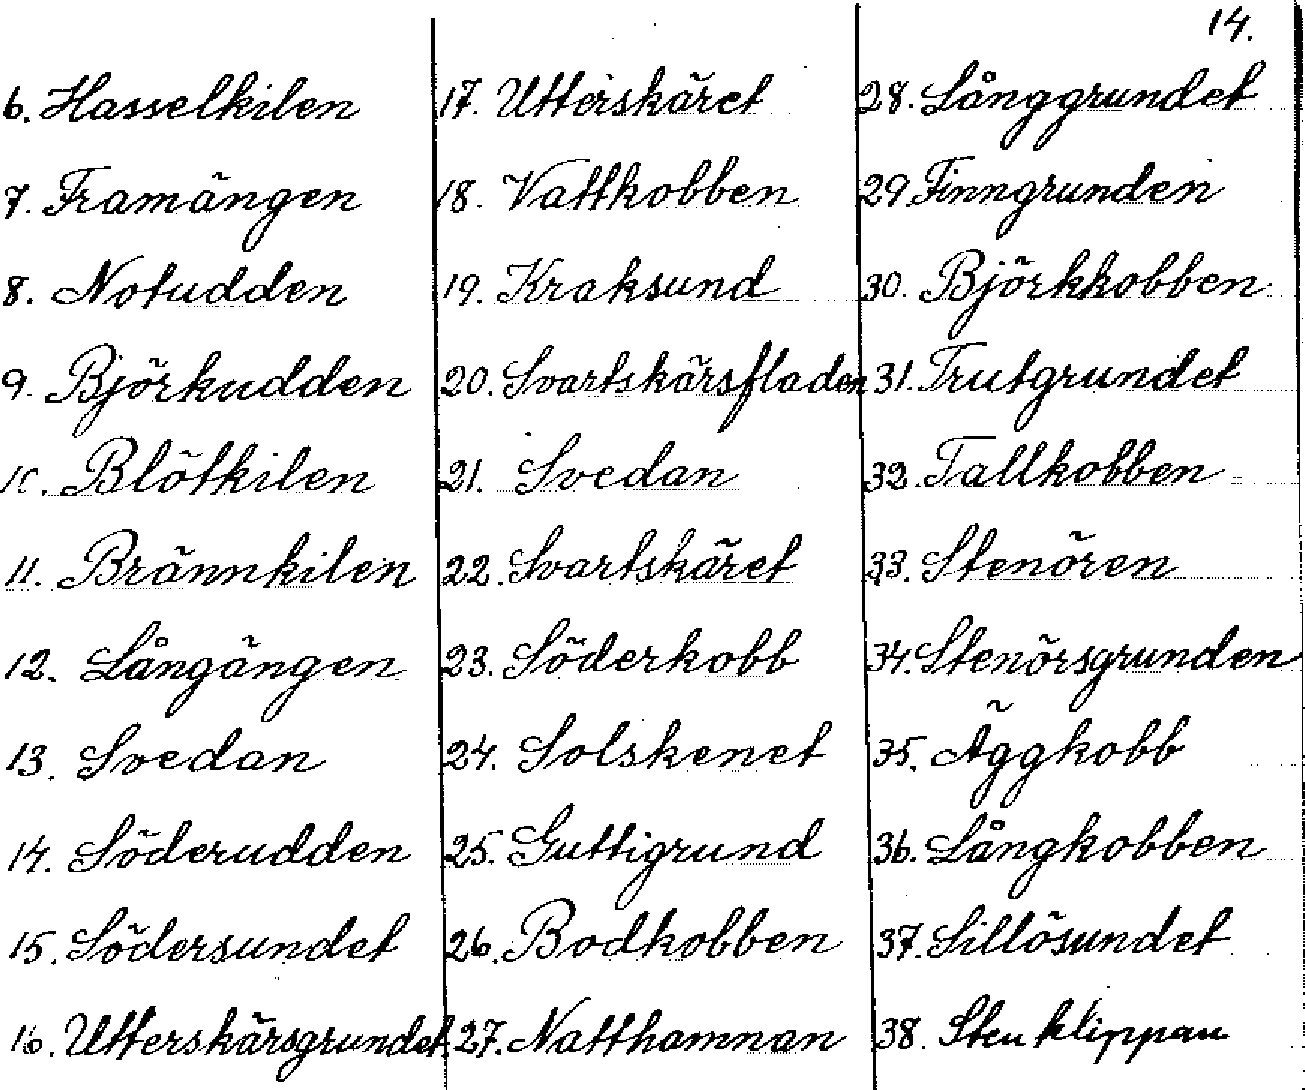 14.
6. Hasselkilen
7. Framängen
8. Notudden
9. Björkudden
10. Blötkilen
11. Brännkilen
12. Långängen
13. Svedan
14. Söderudden
15. Södersundet
16. Utterskärsgrundet
17. Utterskäret
18. Vattkobben
19. Kraksund
20. Svartskärsfladen
21. Svedan
22. Svartskäret
23. Söderkobb
24. Solskenet
25. Guttigrund
26. Bodkobben
27. Natthamnan
28. Långgrundet
29. Finngrunden
30. Björkkobben
31. Trutgrundet
32. Tallkobben
33. Stenören
34. Stenörsgrunden
35. Äggkobb
36. Långkobben
37. Sillösundet
38. Stenklippan